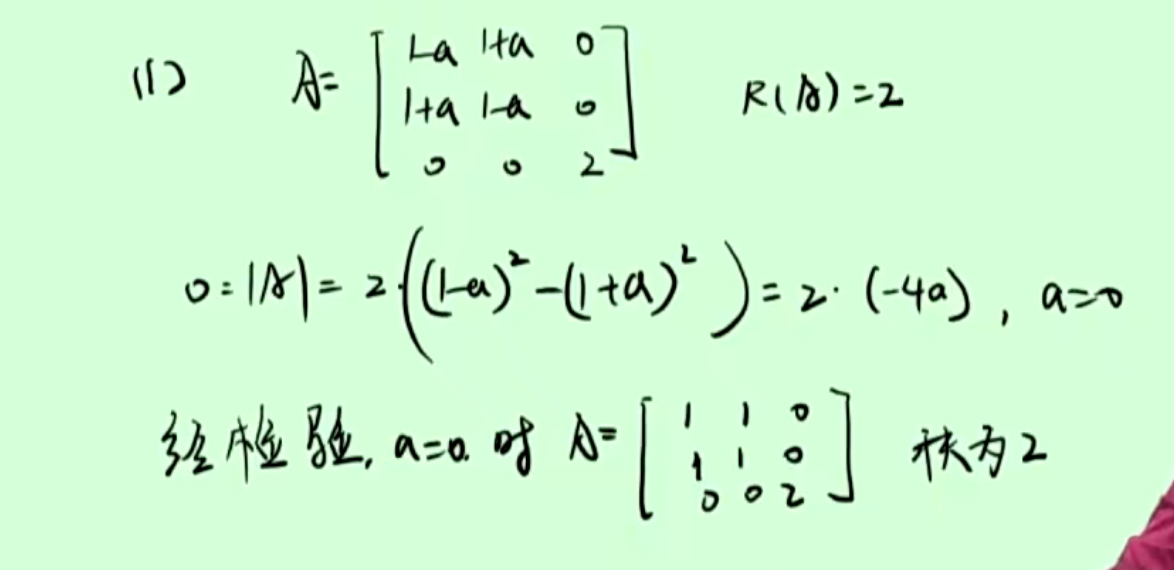 (1) A= [ 1-a 1+a 0
1+a 1-a 0
0 0 2 ] R(A)=2
0=|A|=2·((1-a)²-(1+a)²)=2·(-4a), a=0
经检验, a=0. 时 A= [ 1 1 0
1 1 0
0 0 2 ] 秩为2